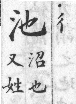 池
沼也
又姓
彳